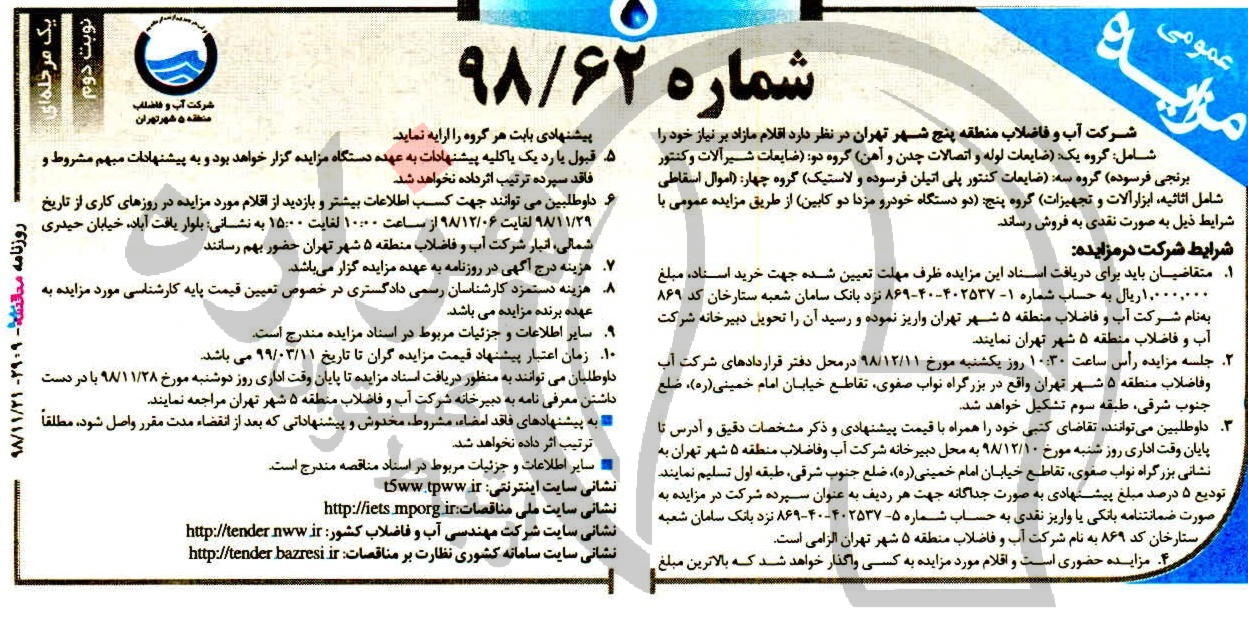 مزایده
عمومی
شماره ۹۸/۶۲
نوبت دوم
یک مرحله‌ای
شرکت آب و فاضلاب
منطقه ۵ شهر تهران
شرکت آب و فاضلاب منطقه پنج شهر تهران در نظر دارد اقلام مازاد بر نیاز خود را
شامل: گروه یک: (ضایعات لوله و اتصالات چدن و آهن) گروه دو: (ضایعات شیرآلات وکنتور
برنجی فرسوده) گروه سه: (ضایعات کنتور پلی اتیلن فرسوده و لاستیک) گروه چهار: (اموال اسقاطی
شامل اثاثیه، ابزارآلات و تجهیزات) گروه پنج: (دو دستگاه خودرو مزدا دو کابین) از طریق مزایده عمومی با
شرایط ذیل به صورت نقدی به فروش رساند.
شرایط شرکت درمزایده:
۱. متقاضیان باید برای دریافت اسناد این مزایده ظرف مهلت تعیین شده جهت خرید اسناد، مبلغ
۱,۰۰۰,۰۰۰ریال به حساب شماره ۱- ۴۰۲۵۳۷-۴۰-۸۶۹ نزد بانک سامان شعبه ستارخان کد ۸۶۹
به‌نام شرکت آب و فاضلاب منطقه ۵ شهر تهران واریز نموده و رسید آن را تحویل دبیرخانه شرکت
آب و فاضلاب منطقه ۵ شهر تهران نمایند.
۲. جلسه مزایده رأس ساعت ۱۰:۳۰ روز یکشنبه مورخ ۹۸/۱۲/۱۱ درمحل دفتر قراردادهای شرکت آب
وفاضلاب منطقه ۵ شهر تهران واقع در بزرگراه نواب صفوی، تقاطع خیابان امام خمینی(ره)، ضلع
جنوب شرقی، طبقه سوم تشکیل خواهد شد.
۳. داوطلبین می‌توانند، تقاضای کتبی خود را همراه با قیمت پیشنهادی و ذکر مشخصات دقیق و آدرس تا
پایان وقت اداری روز شنبه مورخ ۹۸/۱۲/۱۰ به محل دبیرخانه شرکت آب وفاضلاب منطقه ۵ شهر تهران به
نشانی بزرگراه نواب صفوی، تقاطع خیابان امام خمینی(ره)، ضلع جنوب شرقی، طبقه اول تسلیم نمایند.
تودیع ۵ درصد مبلغ پیشنهادی به صورت جداگانه جهت هر ردیف به عنوان سپرده شرکت در مزایده به
صورت ضمانتنامه بانکی یا واریز نقدی به حساب شماره ۵- ۴۰۲۵۳۷-۴۰-۸۶۹ نزد بانک سامان شعبه
ستارخان کد ۸۶۹ به نام شرکت آب و فاضلاب منطقه ۵ شهر تهران الزامی است.
۴. مزایده حضوری است و اقلام مورد مزایده به کسی واگذار خواهد شد که بالاترین مبلغ
پیشنهادی بابت هر گروه را ارایه نماید.
۵. قبول یا رد یک یاکلیه پیشنهادات به عهده دستگاه مزایده گزار خواهد بود و به پیشنهادات مبهم مشروط و
فاقد سپرده ترتیب اثرداده نخواهد شد.
۶. داوطلبین می توانند جهت کسب اطلاعات بیشتر و بازدید از اقلام مورد مزایده در روزهای کاری از تاریخ
۹۸/۱۱/۲۹ لغایت ۹۸/۱۲/۰۶ از ساعت ۱۰:۰۰ لغایت ۱۵:۰۰ به نشانی: بلوار یافت آباد، خیابان حیدری
شمالی، انبار شرکت آب و فاضلاب منطقه ۵ شهر تهران حضور بهم رسانند
۷. هزینه درج آگهی در روزنامه به عهده مزایده گزار می‌باشد.
۸. هزینه دستمزد کارشناسان رسمی دادگستری در خصوص تعیین قیمت پایه کارشناسی مورد مزایده به
عهده برنده مزایده می باشد.
۹. سایر اطلاعات و جزئیات مربوط در اسناد مزایده مندرج است.
۱۰. زمان اعتبار پیشنهاد قیمت مزایده گران تا تاریخ ۹۹/۰۳/۱۱ می باشد.
داوطلبان می توانند به منظور دریافت اسناد مزایده تا پایان وقت اداری روز دوشنبه مورخ ۹۸/۱۱/۲۸ با در دست
داشتن معرفی نامه به دبیرخانه شرکت آب و فاضلاب منطقه ۵ شهر تهران مراجعه نمایند.
به پیشنهادهای فاقد امضاء، مشروط، مخدوش و پیشنهاداتی که بعد از انقضاء مدت مقرر واصل شود، مطلقاً
ترتیب اثر داده نخواهد شد.
سایر اطلاعات و جزئیات مربوط در اسناد مناقصه مندرج است.
نشانی سایت اینترنتی: t5ww.tpww.ir
نشانی سایت ملی مناقصات: http://iets.mporg.ir
نشانی سایت شرکت مهندسی آب و فاضلاب کشور: http://tender.nww.ir
نشانی سایت سامانه کشوری نظارت بر مناقصات: http://tender.bazresi.ir
روزنامه مناقصه - ۲۹۰۹ - ۹۸/۱۱/۲۱